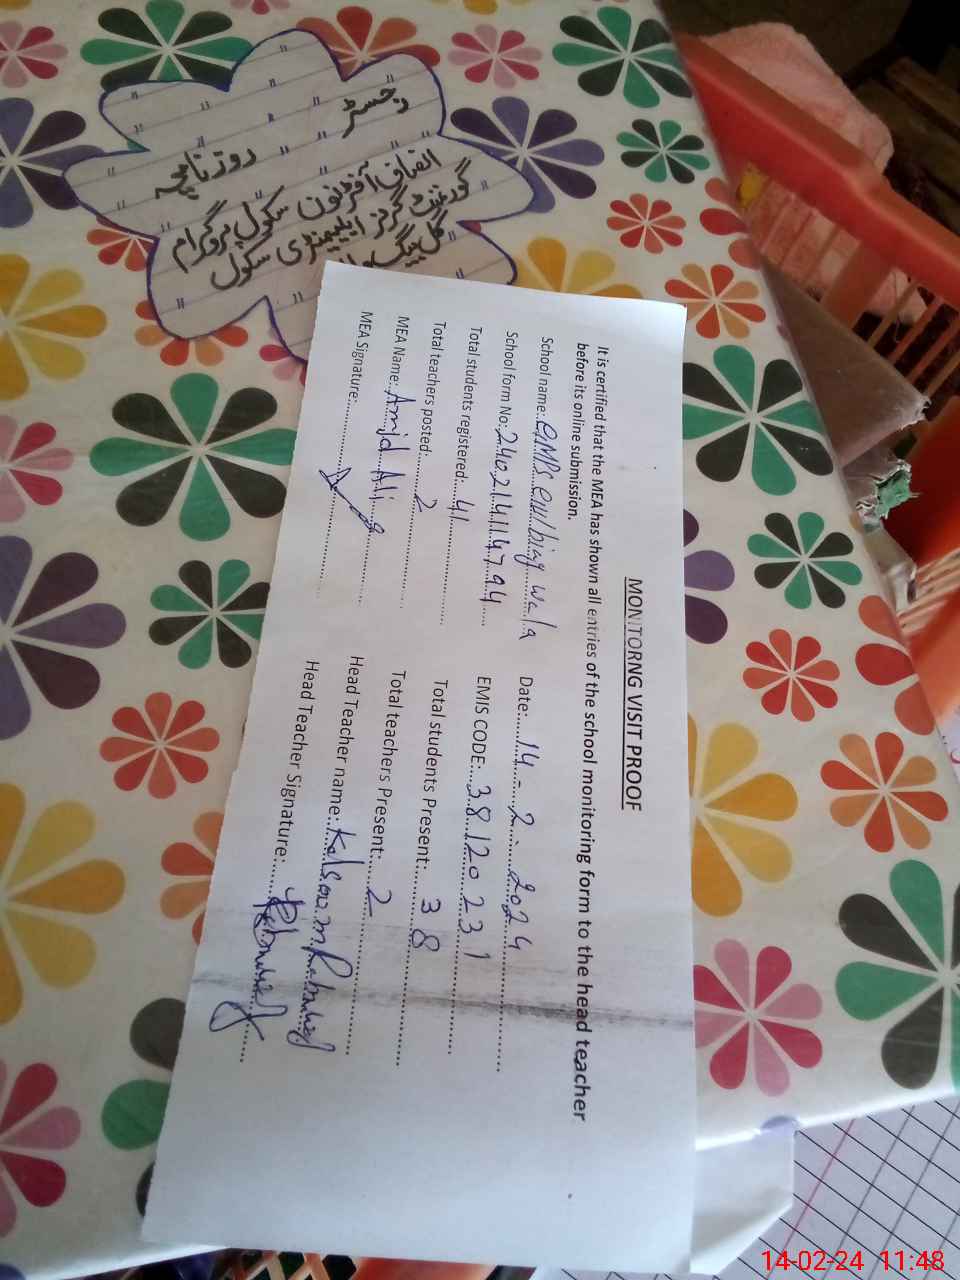 رجسٹر
روزنامچہ
انصاف آفٹرنون سکول پروگرام
گورنمنٹ گرلز ایلیمنٹری سکول
گل بیگ
MONITORNG VISIT PROOF
It is certified that the MEA has shown all entries of the school monitoring form to the head teacher
before its online submission.
School name: Date: 14-2-2024
School form No: 240214114794 EMIS CODE: 38120231
Total students registered: 41 Total students Present: 38
Total teachers posted: 2 Total teachers Present: 2
MEA Name: Amjd Ali Head Teacher name: Kalsoom
MEA Signature: Head Teacher Signature:
14-02-24 11:48